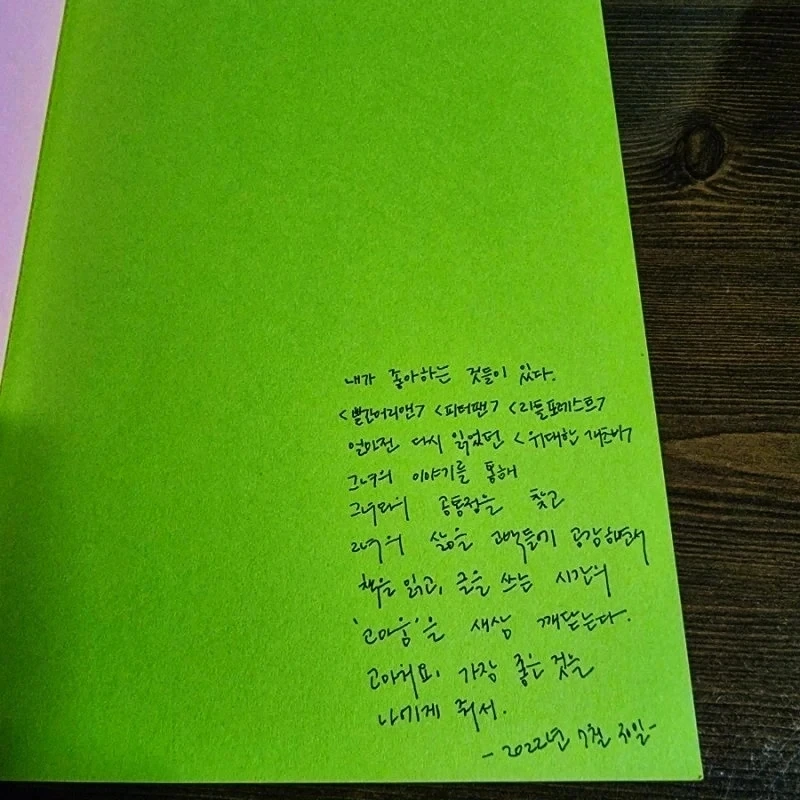 내가 좋아하는 것들이 있다.
<빨간머리앤> <피터팬> <리틀포레스트>
얼마전 다시 읽었던 <위대한 개츠비>
그녀의 이야기를 통해
그녀와의 공통점을 찾고
그녀의 삶을 고백들에 공감하면서
책을 읽고, 글을 쓰는 시간의
'고마움'을 새삼 깨닫는다.
고마워요, 가장 좋은 것을
나에게 줘서.
- 2022년 7월 30일 -